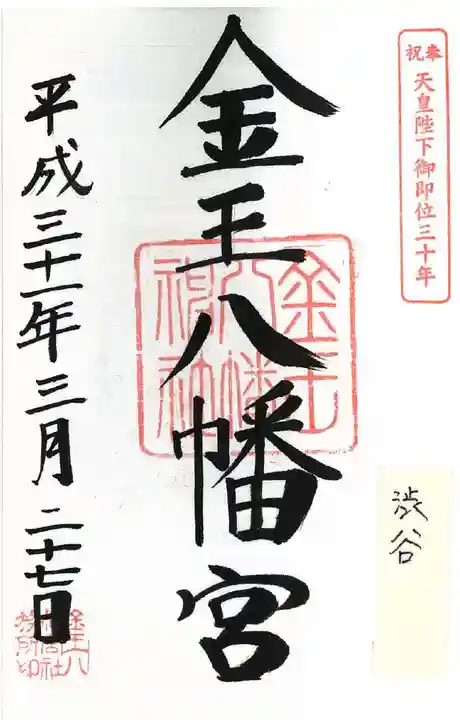 奉祝
天皇陛下御即位三十年
渋谷
金王八幡宮
金王八幡神社
平成三十一年三月二十七日